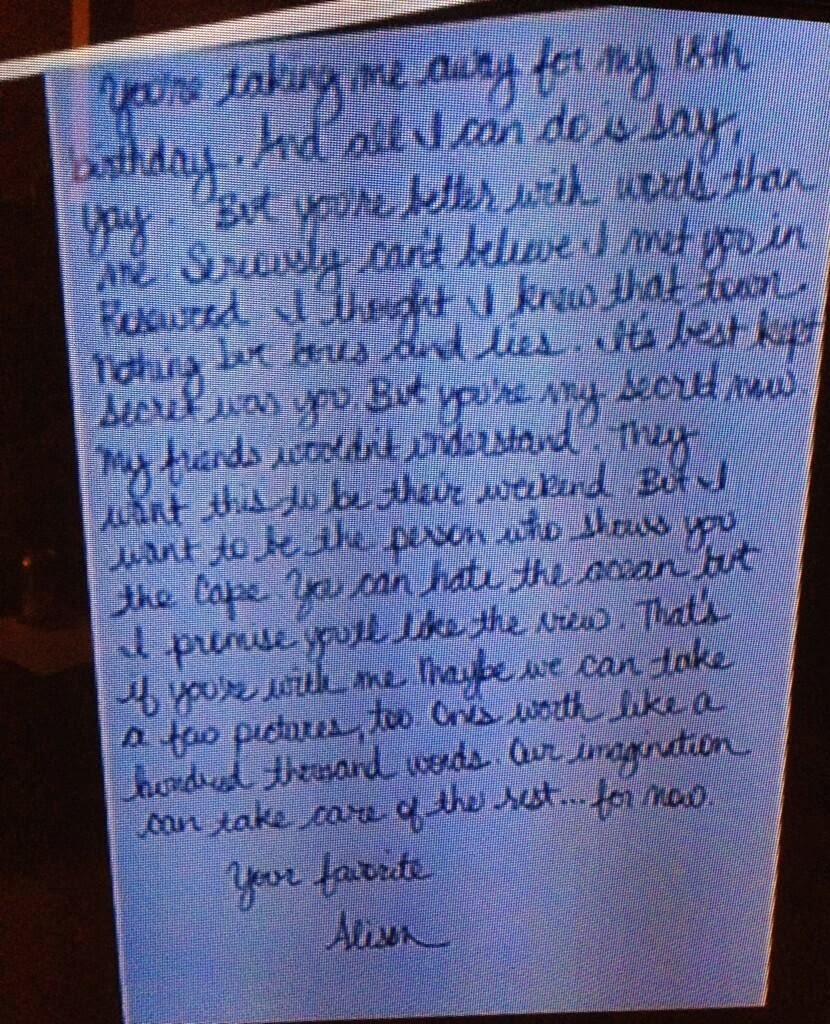 You're taking me away for my 18th
birthday. And all I can do is say,
yay. But you're better with words than
me. Seriously can't believe I met you in
Rosewood. I thought I knew that town.
Nothing but bores and lies. It's best kept
secret was you. But you're my secret now.
My friends wouldn't understand. They
want this to be their weekend. But I
want to be the person who shows you
the Cape. You can hate the ocean but
I promise you'll like the view. That's
if you're with me. Maybe we can take
a few pictures, too. One's worth like a
hundred thousand words. Our imagination
can take care of the rest... for now.
Your favorite
Alison